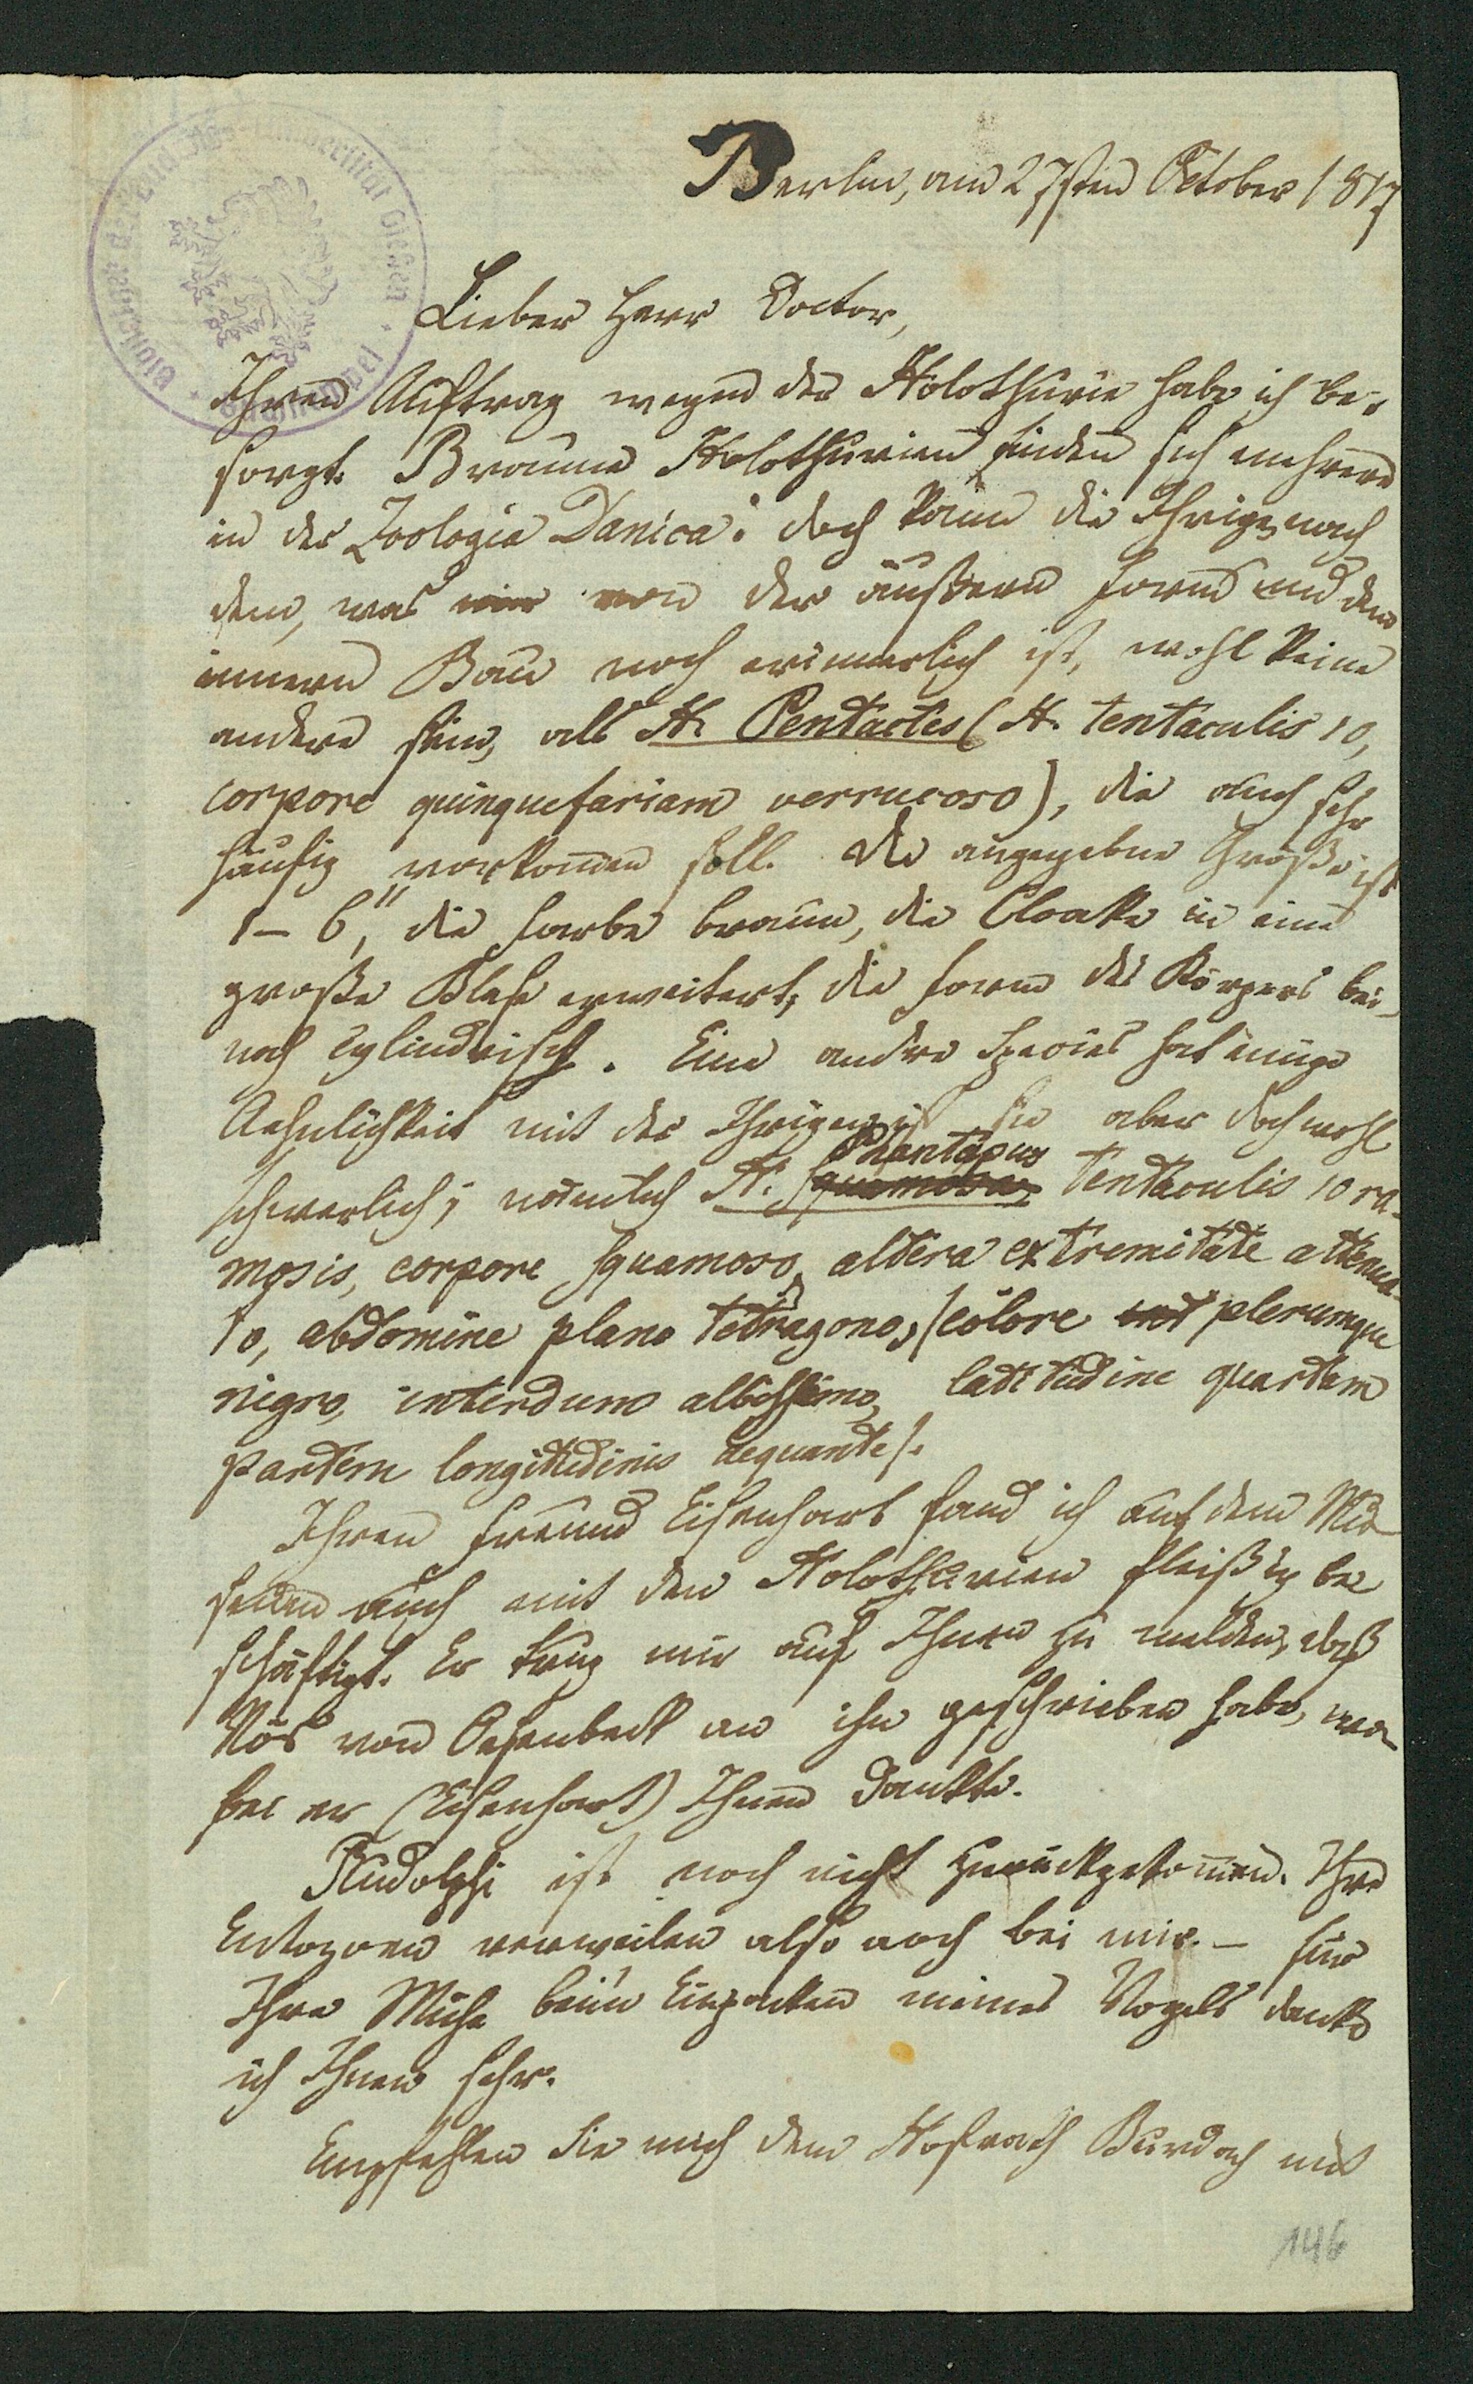 Berlin, am 27sten October 1817
Lieber Herr Doctor,
Ihren Auftrag wegen der Holothurie habe ich be-
sorgt. Braune Holothurien finden sich mehrere
in der Zoologia Danica: doch kann die Ihrige, nach
dem, was mir von der äußern Form und dem
innern Bau noch erinnerlich ist, wohl keine
andere sein, als H. Pentactes (H. tentaculis 10,
corpore quinquefariam verrucoso), die auch sehr
häufig vorkommen soll. Die angegebne Größe ist
1–6", die Farbe braun, die Cloake in eine
große Blase erweitert, die Form des Körpers bei-
nah cylindrisch. Eine andre Species hat einige
Aehnlichkeit mit der Ihrigen, ist sie aber doch wohl
Phantapus
schwerlich; nämlich H. squamosa, tentaculis 10 ra-
mosis, corpore squamoso, altera extremitate attenua-
to, abdomine plano tetragono, /colore plerumque
nigro, interdum albissimo, latitudine quartam
partem longitudinis aequante/.
Ihren Freund Eisenhart fand ich auf dem Mu-
seum auch mit den Holothurien fleißig be
schäftigt. Er trug mir auf Ihnen zu melden, daß
Nees von Esenbeck an ihn geschrieben habe, wo-
bei er (Eisenhart) Ihnen dankte.
Rudolphi ist noch nicht zurückgekommen. Ihre
Entozoen verweilen also noch bei mir. – Für
Ihre Mühe beim Einpacken meines Vogels danke
ich Ihnen sehr.
Empfehlen Sie mich dem Hofrath Burdach und
146